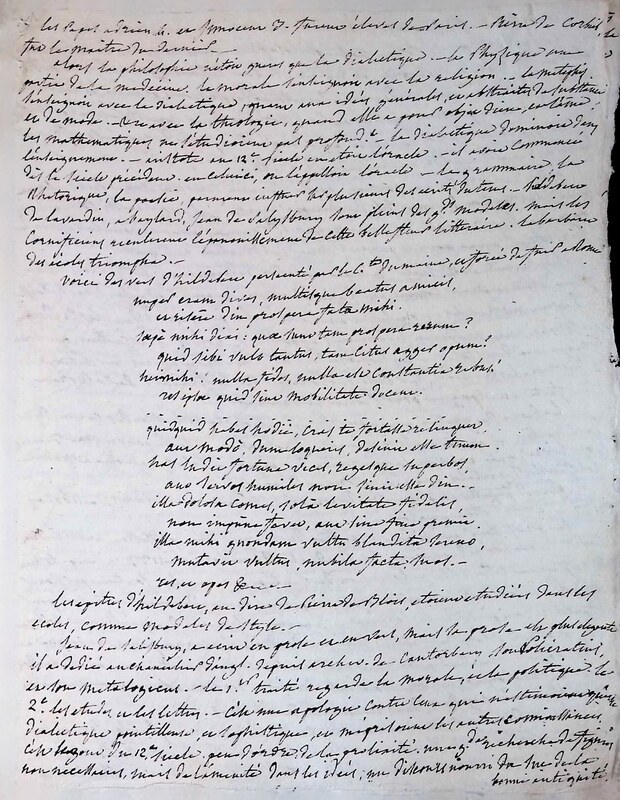 les Papes adrien 4. et innocent 3. furent élèves de Paris. — Pierre de Corbeil
fut le maitre du dernier. —
alors la philosophie n'étoit gueres que la dialectique. — la Physique une
partie de la médecine. la morale s'enseignoit avec la religion. — la métaphis
s'enseignoit avec la dialectique, quant aux idées générales, et abstraites de substance
et de mode. — avec la theologie, quand elle a pour objet dieu, et l'ame.
les mathematiques ne s'étudioient pas profondt. — la dialectique dominoit dans
l'enseignement. — aristote au 12e. siecle en étoit l'oracle. — il avoit commencé
dès le siecle précédent. en celui ci, on l'appelloit l'oracle. — la grammaire, la
Rhétorique, la poésie, parurent plusieurs des écrits du tems. — hildebert
de lavardin, abaylard, Jean de Salysbury sont pleins des gds. modeles. mais les
Cornificiens renverserent l'épanouissement de cette belle fleur littéraire. la barbarie
des écoles triompha. —
voici des vers d'hildebert persécuté par le Cte. du maine, et forcé de fuir à Rome
nuper eram dives, multisque beatus amicis,
et risere diu prospera fata mihi.
saepè mihi dixi: quae sunt tam prospera rerum?
quid sibi vult tantus, tam citus agger opum?
hei mihi! nulla fides, nulla est constantia rebus!
res ipsae quid sint mobilitate docent.
quidquid habes hodiè, cras te fortasse relinquet
aut modò, dum loqueris, desinit esse tuum.
has ludit fortuna vices, regesque superbos
aut servos humiles non sinit esse diu. —
illa dolosa comes, solâ levitate fidelis,
non impunè favet, aut sine fine premit.
illa mihi quondam vultu blandita sereno,
mutavit vultus, nubila facta, suos. —
res, et opes &c. —
les epitres d'hildebert, au dire de Pierre de Blois, etoient etudiées dans les
écoles, comme modèles de style. —
Jean de Salisbury, a ecrit en prose et en vers, mais la prose est plus élégante
il a dédié au chancelier d'angl. depuis archev. de Cantorbery son Policraticus,
et son metalogicus. — le 1er. traité regarde la morale, et la politique. le
2e. les etudes, et les lettres. — C'est une apologie contre ceux qui n'estimoient que la
dialectique pointilleuse, et sophistique, et méprisoient les autres connoissances.
C'est du 12e. siecle. peu d'ordre de la prolixité. une gde. recherche de figures
non necessaires, mais de l'aménité dans les idées, un discours nourri du suc de la
bonne antiquité.